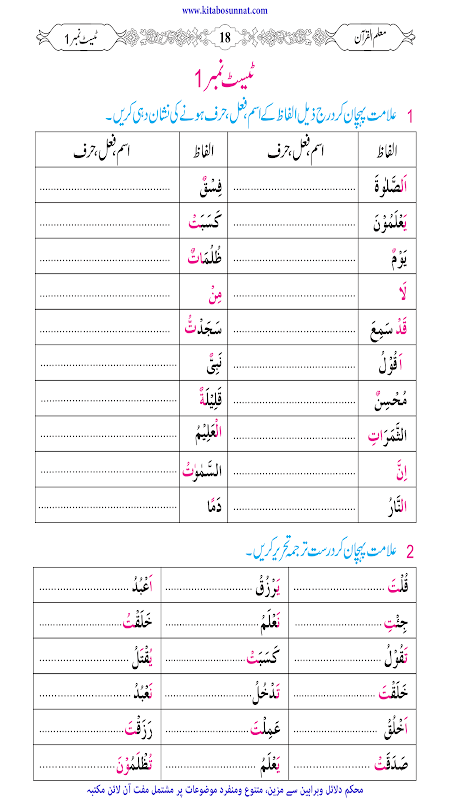 www.kitabosunnat.com
معلم القرآن 18 ٹیسٹ نمبر 1
ٹیسٹ نمبر 1
1 علامت پہچان کر درج ذیل الفاظ کے اسم، فعل، حرف ہونے کی نشان دہی کریں۔
الفاظ اسم، فعل، حرف الفاظ اسم، فعل، حرف
اَلصَّلٰوةَ .......... فِسْقٌ ..........
يَعْلَمُوْنَ .......... كَسَبَتْ ..........
يَوْمٌ .......... ظُلُمَاتٌ ..........
لَا .......... مِنْ ..........
قَدْ سَمِعَ .......... سَجَدْتُّ ..........
اَقُوْلُ .......... نَبِيٌّ ..........
مُحْسِنٌ .......... قَلِيْلَةٌ ..........
الثَّمَرَاتِ .......... الْعَلِيْمُ ..........
اِنَّ .......... السَّمٰوٰتُ ..........
النَّارُ .......... دَمًا ..........
2 علامت پہچان کر درست ترجمہ تحریر کریں۔
قُلْتَ .......... يَرْزُقُ .......... اَعْبُدُ ..........
جِئْتِ .......... نَعْلَمُ .......... خَلَقْتُ ..........
تَقُوْلُ .......... كَسَبَتْ .......... يُقْتَلُ ..........
خَلَقْتَ .......... تَدْخُلُ .......... نَعْبُدُ ..........
اَخْلُقُ .......... عَمِلْتَ .......... رَزَقْتَ ..........
صَدَقَتْ .......... يَعْلَمُ .......... تُظْلَمُوْنَ ..........
محکم دلائل وبراہین سے مزین، متنوع ومنفرد موضوعات پر مشتمل مفت آن لائن مکتبہ